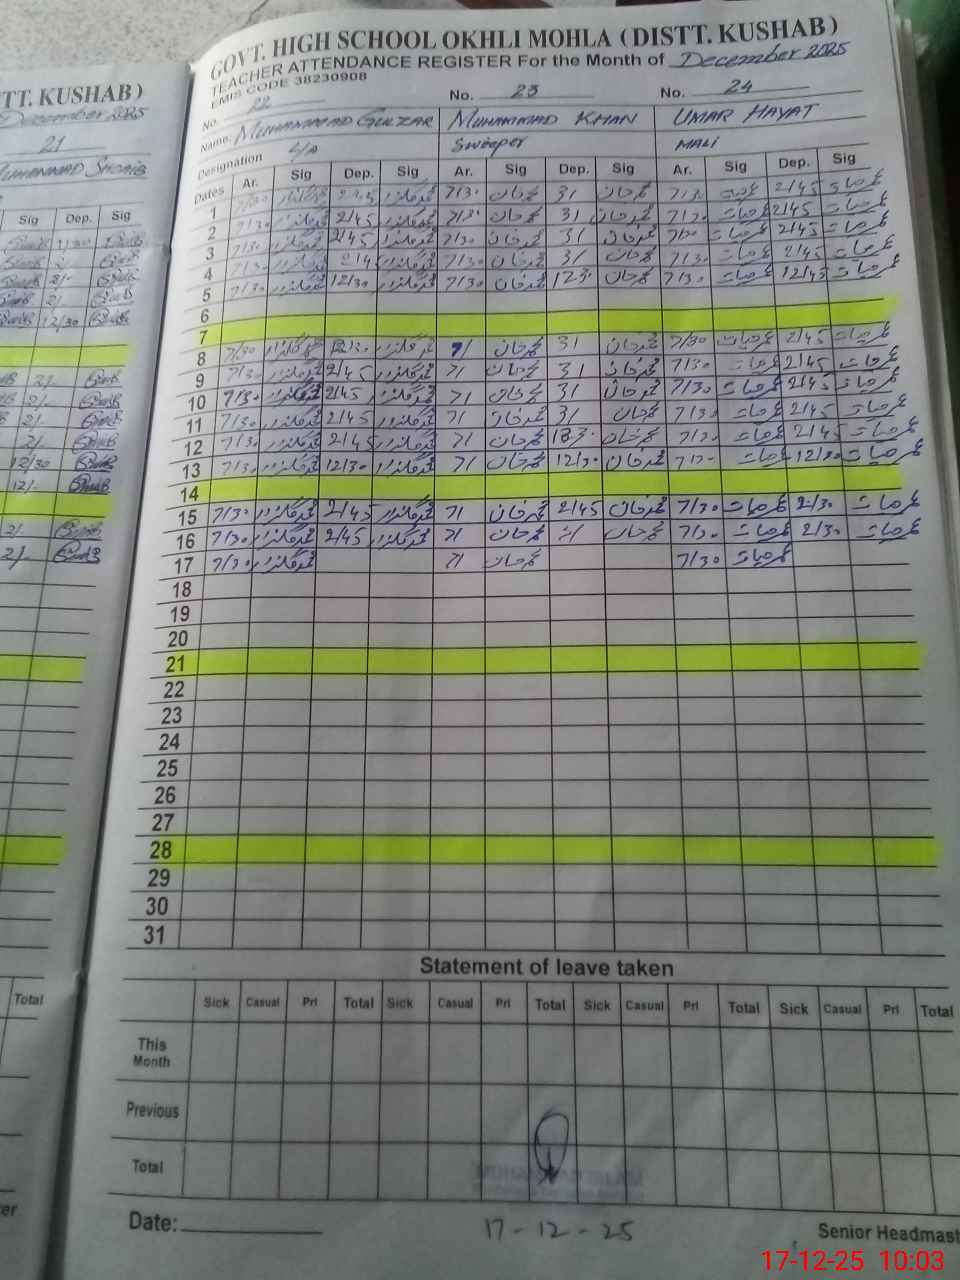 TT. KUSHAB)
December 2025
21
Muhammad Shoaib
Sig Dep. Sig
12/30
2/-
2/-
2/-
2/-
12/30
12/-
2/-
2/-
Total
GOVT. HIGH SCHOOL OKHLI MOHLA (DISTT. KUSHAB)
TEACHER ATTENDANCE REGISTER For the Month of December 2025
EMIS CODE 38230908
No. 22 No. 23 No. 24
Name. MUHAMMAD GULZAR MUHAMMAD KHAN UMAR HAYAT
Designation L/A Sweeper MALI
Dates Ar. Sig Dep. Sig Ar. Sig Dep. Sig Ar. Sig Dep. Sig
1 7/30 2/45 7/30 محمدخان 3/ محمدخان 7/30 عمرحیات 2/45 عمرحیات
2 7/30 2/45 محمدخان 3/ محمدخان 7/30 عمرحیات 2/45 عمرحیات
3 7/30 2/45 7/30 محمدخان 3/ محمدخان 7/30 عمرحیات 2/45 عمرحیات
4 7/30 7/30 محمدخان 3/ محمدخان 7/30 عمرحیات 2/45 عمرحیات
5 7/30 12/30 7/30 محمدخان محمدخان 7/30 عمرحیات 12/45 عمرحیات
6
7
8 7/30 محمدگلزار محمدگلزار 7/ محمدخان 3/ محمدخان 7/30 عمرحیات 2/45 عمرحیات
9 7/30 محمدگلزار 2/45 محمدگلزار 7/ محمدخان 3/ محمدخان 7/30 عمرحیات 2/45 عمرحیات
10 7/30 محمدگلزار 2/45 محمدگلزار 7/ محمدخان 3/ محمدخان 7/30 عمرحیات 2/45 عمرحیات
11 7/30 محمدگلزار 2/45 محمدگلزار 7/ محمدخان 3/ محمدخان 7/30 عمرحیات 2/45 عمرحیات
12 7/30 محمدگلزار 2/45 محمدگلزار 7/ محمدخان محمدخان 7/30 عمرحیات 2/45 عمرحیات
13 7/30 محمدگلزار 12/30 محمدگلزار 7/ محمدخان 12/30 محمدخان 7/30 عمرحیات 12/30 عمرحیات
14
15 7/30 محمدگلزار 2/45 محمدگلزار 7/ محمدخان 2/45 محمدخان 7/30 عمرحیات 2/30 عمرحیات
16 7/30 محمدگلزار 2/45 محمدگلزار 7/ محمدخان محمدخان 7/30 عمرحیات 2/30 عمرحیات
17 7/30 محمدگلزار 7/ محمدخان 7/30 عمرحیات
18
19
20
21
22
23
24
25
26
27
28
29
30
31
Statement of leave taken
Sick Casual Prl Total Sick Casual Prl Total Sick Casual Prl Total Sick Casual Prl Total
This
Month
Previous
Total
Date: 17-12-25 Senior Headmast
17-12-25 10:03